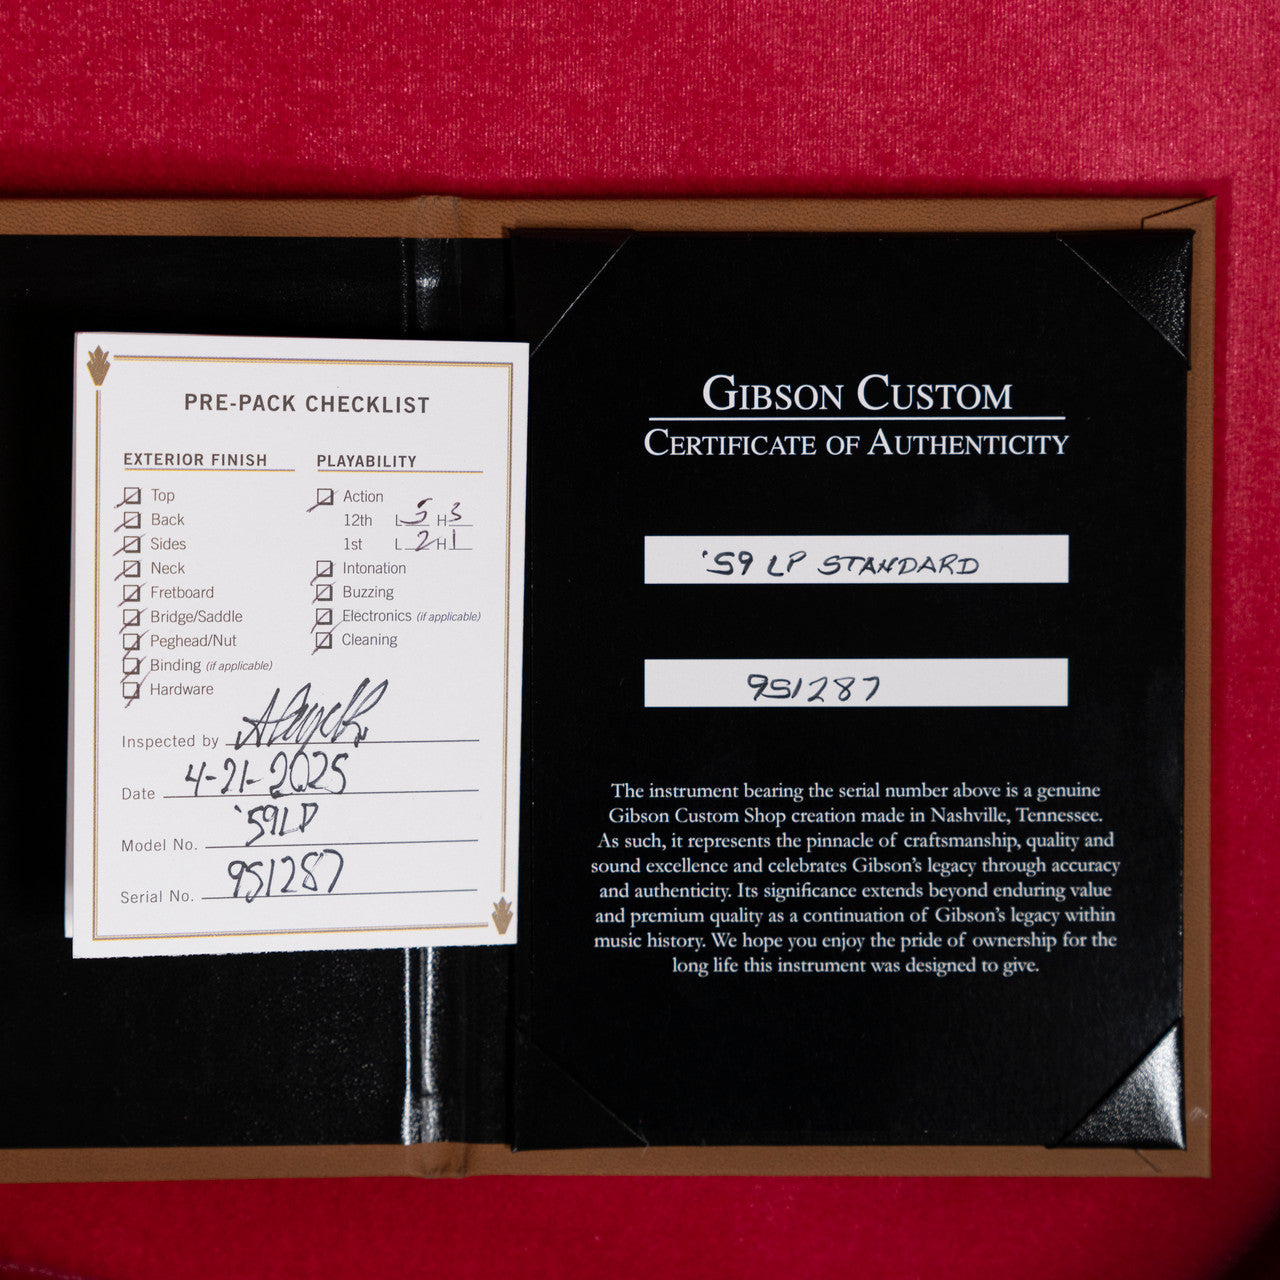 PRE-PACK CHECKLIST
EXTERIOR FINISH
Top
Back
Sides
Neck
Fretboard
Bridge/Saddle
Peghead/Nut
Binding (if applicable)
Hardware
PLAYABILITY
Action
12th L 5 H 3
1st L 2 H 1
Intonation
Buzzing
Electronics (if applicable)
Cleaning
Inspected by
Date 4-21-2025
Model No. '59 LP
Serial No. 951287
GIBSON CUSTOM
CERTIFICATE OF AUTHENTICITY
'59 LP STANDARD
951287
The instrument bearing the serial number above is a genuine
Gibson Custom Shop creation made in Nashville, Tennessee.
As such, it represents the pinnacle of craftsmanship, quality and
sound excellence and celebrates Gibson's legacy through accuracy
and authenticity. Its significance extends beyond enduring value
and premium quality as a continuation of Gibson's legacy within
music history. We hope you enjoy the pride of ownership for the
long life this instrument was designed to give.